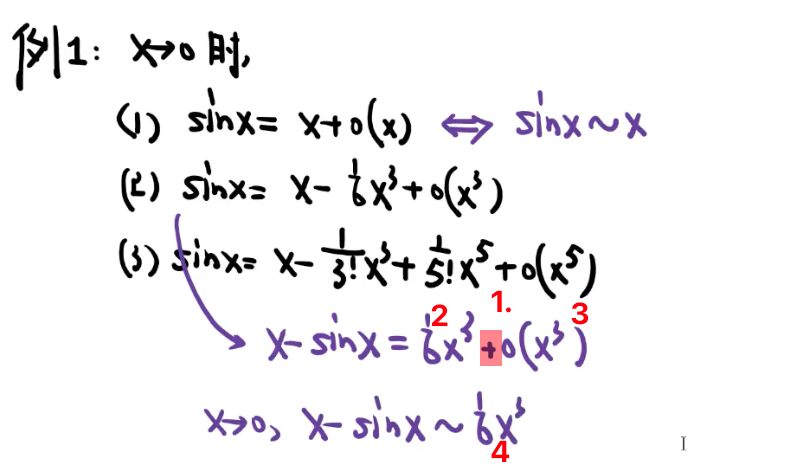 例1: x→0时,
(1) sinx= x+o(x) ⇔ sinx~x
(2) sinx= x- 1/6 x³+o(x³)
(3) sinx= x- 1/3! x³+ 1/5! x⁵+o(x⁵)
2 1. 3
x-sinx= 1/6 x³+o(x³)
x→0, x-sinx~ 1/6 x³
4